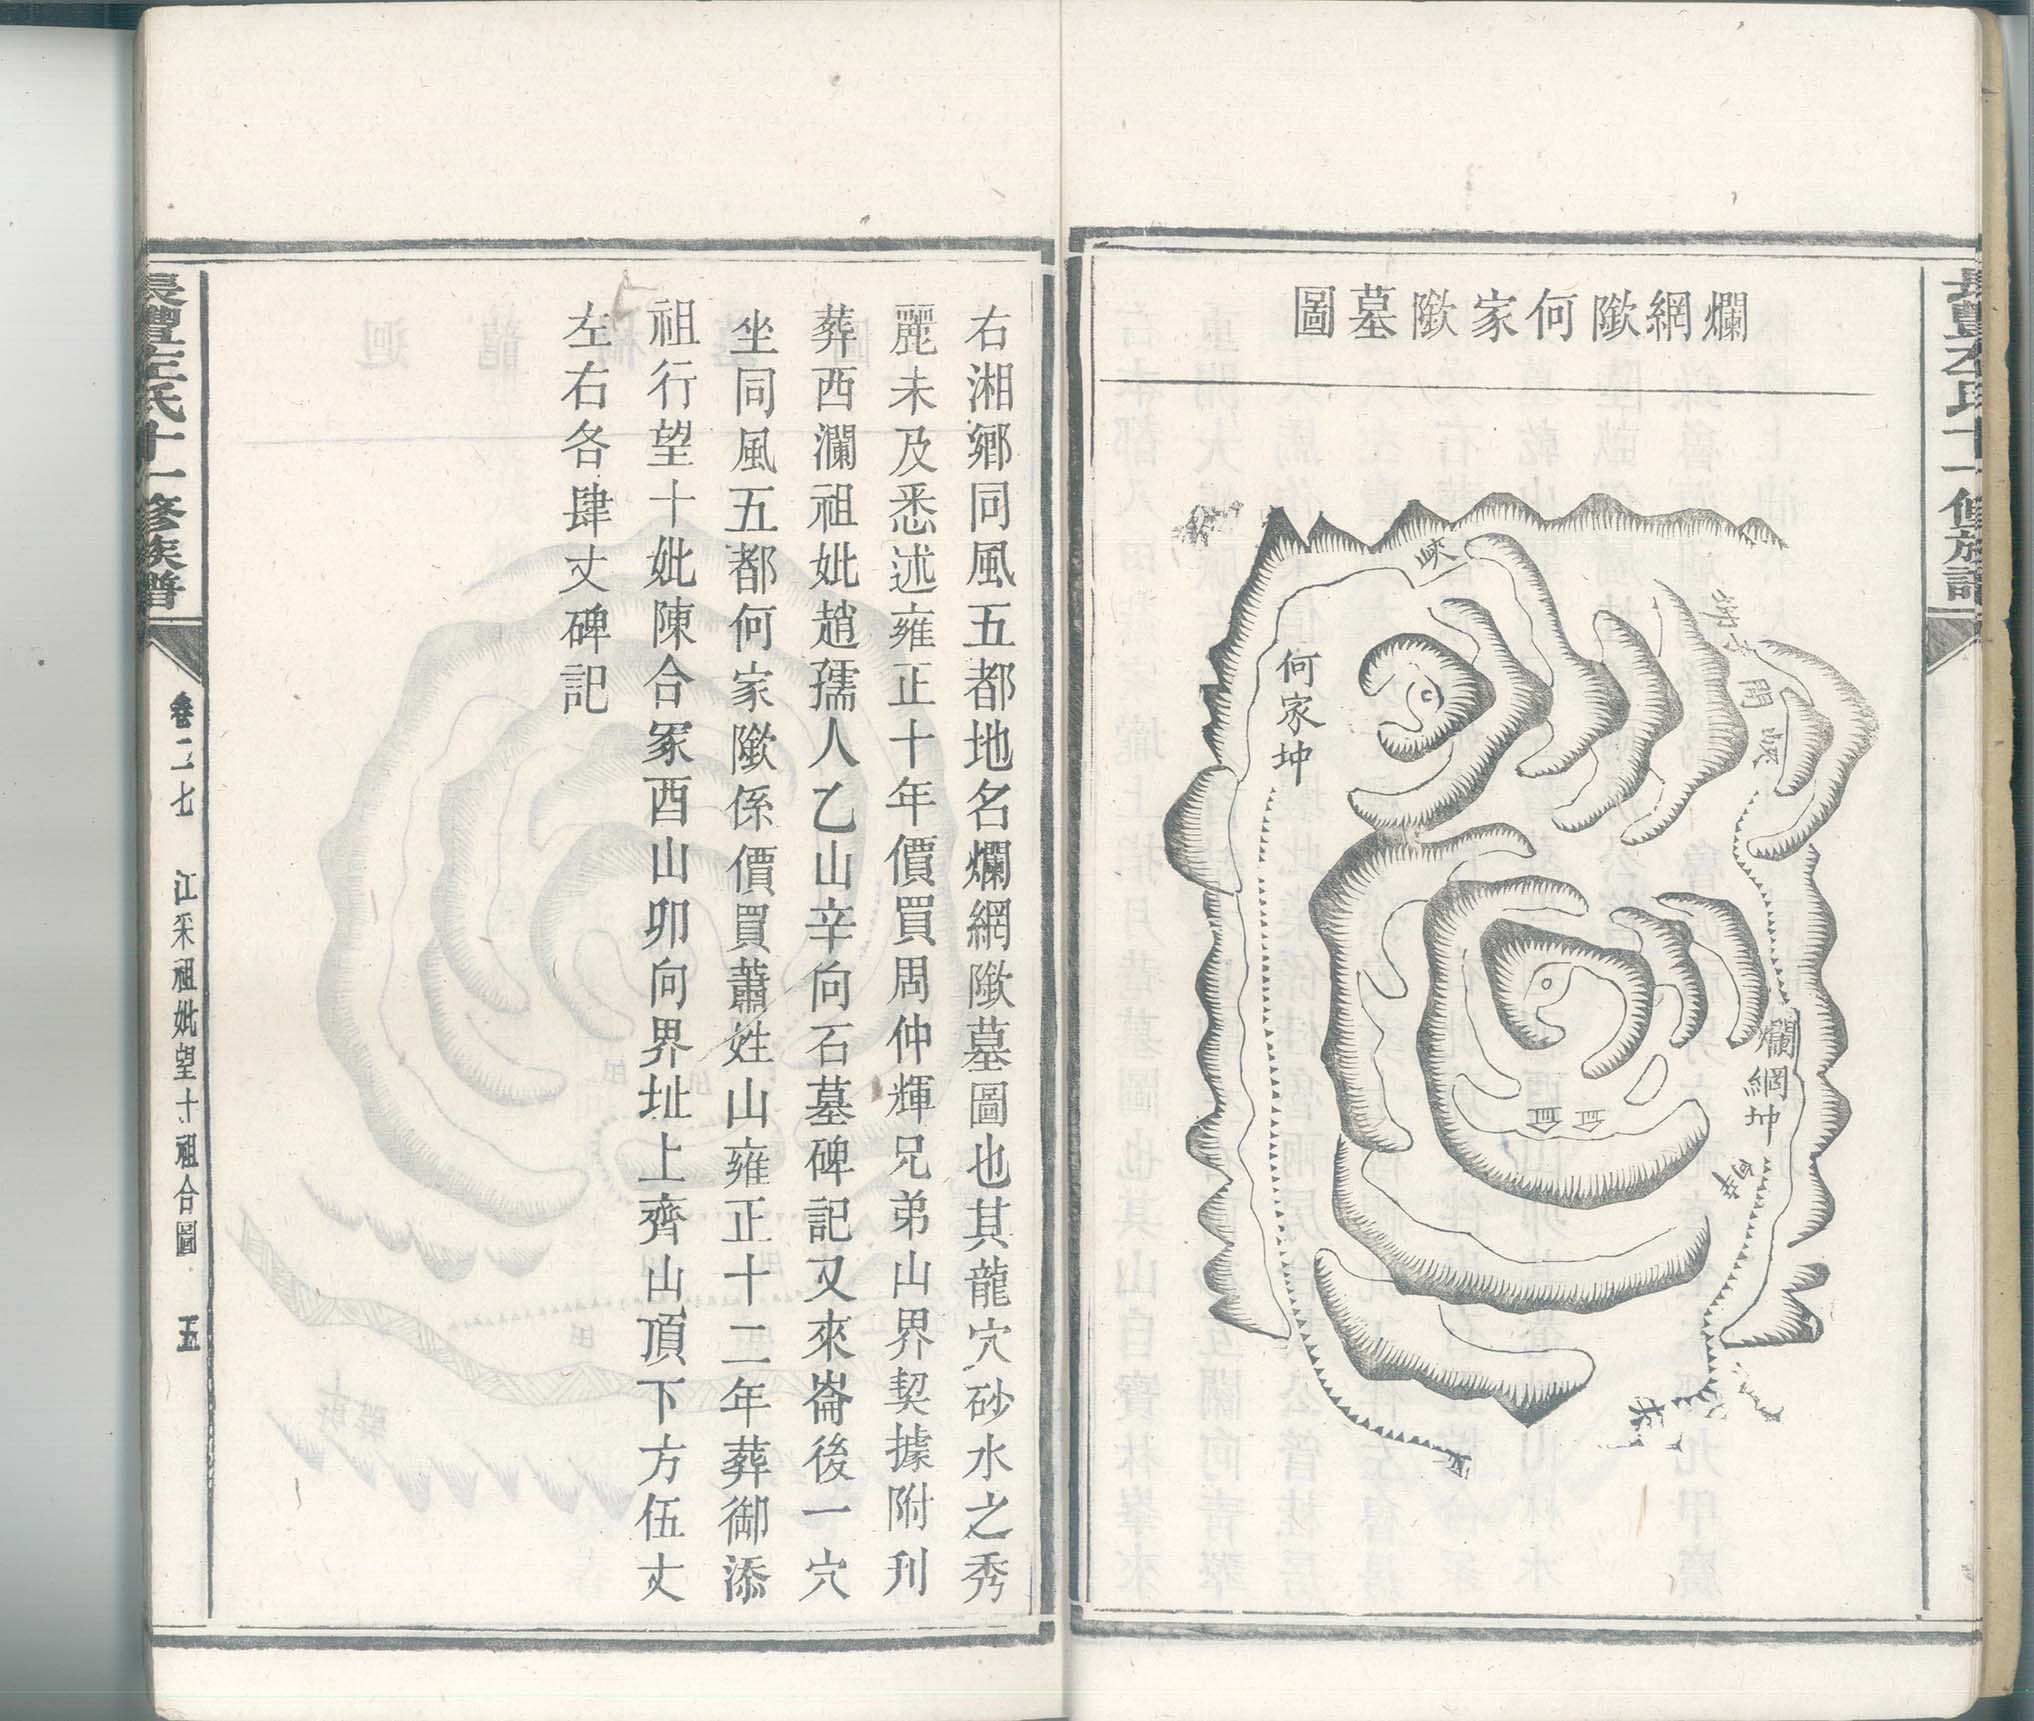 爛網隞何家隞墓圖
峽
何家坤
爛網坤
右湘鄉同風五都地名爛網隞墓圖也其龍穴砂水之秀
麗未及悉述雍正十年價買周仲輝兄弟山界契據附刋
葬西瀾祖妣趙孺人乙山辛向石墓碑記又來崙後一穴
坐同風五都何家隞係價買蕭姓山雍正十二年葬御添
祖行望十妣陳合冢酉山卯向界址上齊山頂下方伍丈
左右各肆丈碑記
長豐左氏十一修族譜
卷二七
江采祖妣望十祖合圖
五